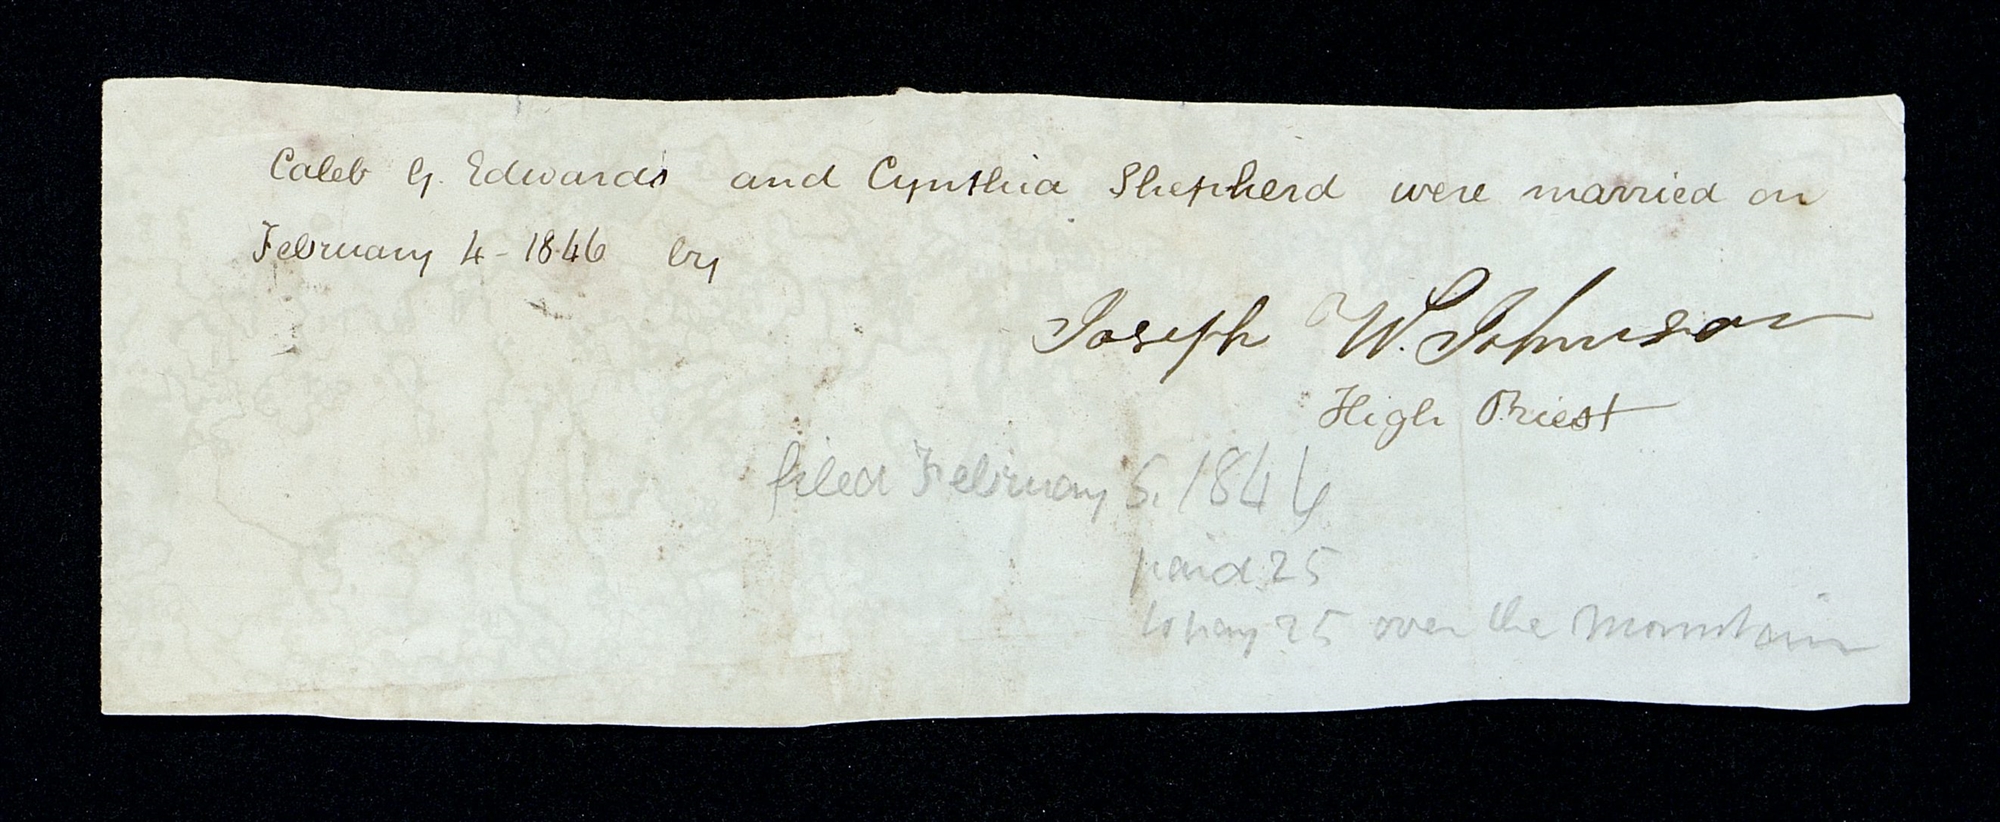 Caleb G. Edwards and Cynthia Shepherd were married on
February 4 - 1846 by
Joseph W. Johnson
High Priest
filed February 5, 1846
paid 25
to pay 25 over the Mountain